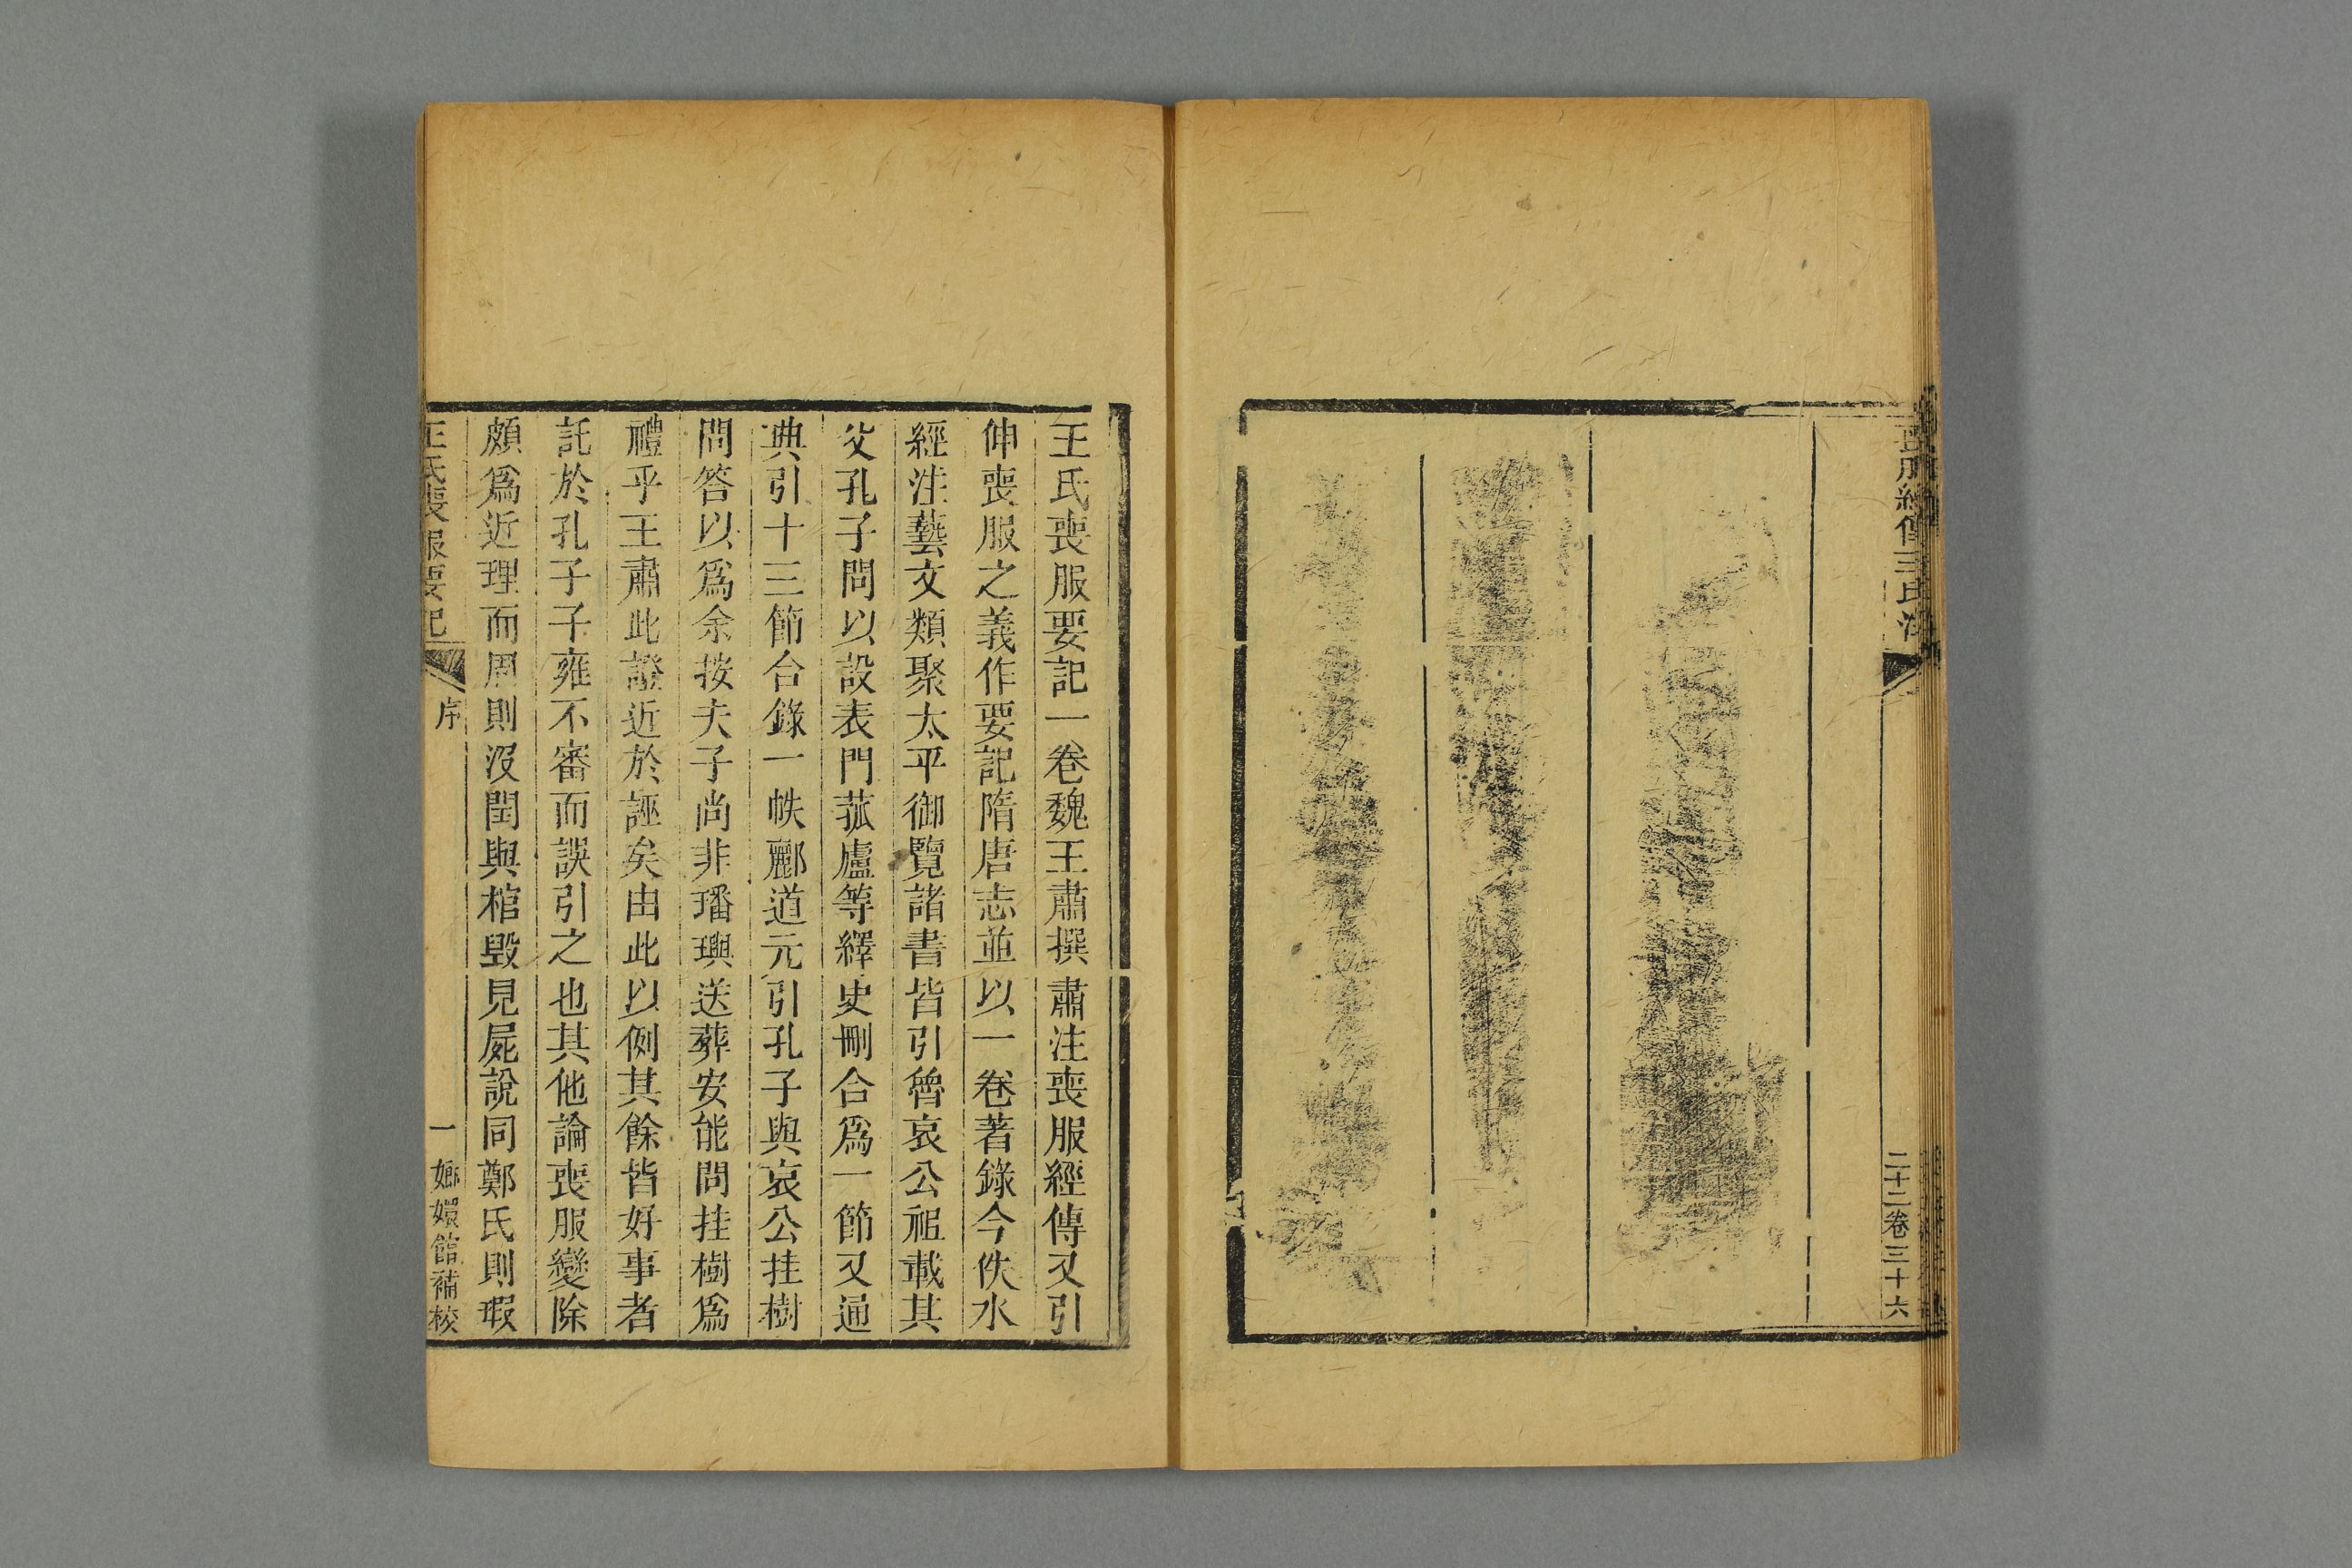 喪服經傳王氏注
二十二卷三十六
王氏喪服要記一卷魏王肅撰肅注喪服經傳又引
伸喪服之義作要記隋唐志並以一卷著錄今佚水
經注藝文類聚太平御覽諸書皆引魯哀公祖載其
父孔子問以設表門菰廬等繹史刪合爲一節又通
典引十三節合錄一帙酈道元引孔子與哀公挂樹
問答以爲余按夫子尚非璠璵送葬安能問挂樹爲
禮乎王肅此證近於誣矣由此以例其餘皆好事者
託於孔子子雍不審而誤引之也其他論喪服變除
頗爲近理而周則沒閏與棺毀見屍說同鄭氏則瑕
王氏喪服要記
序
一
嫏嬛館補校